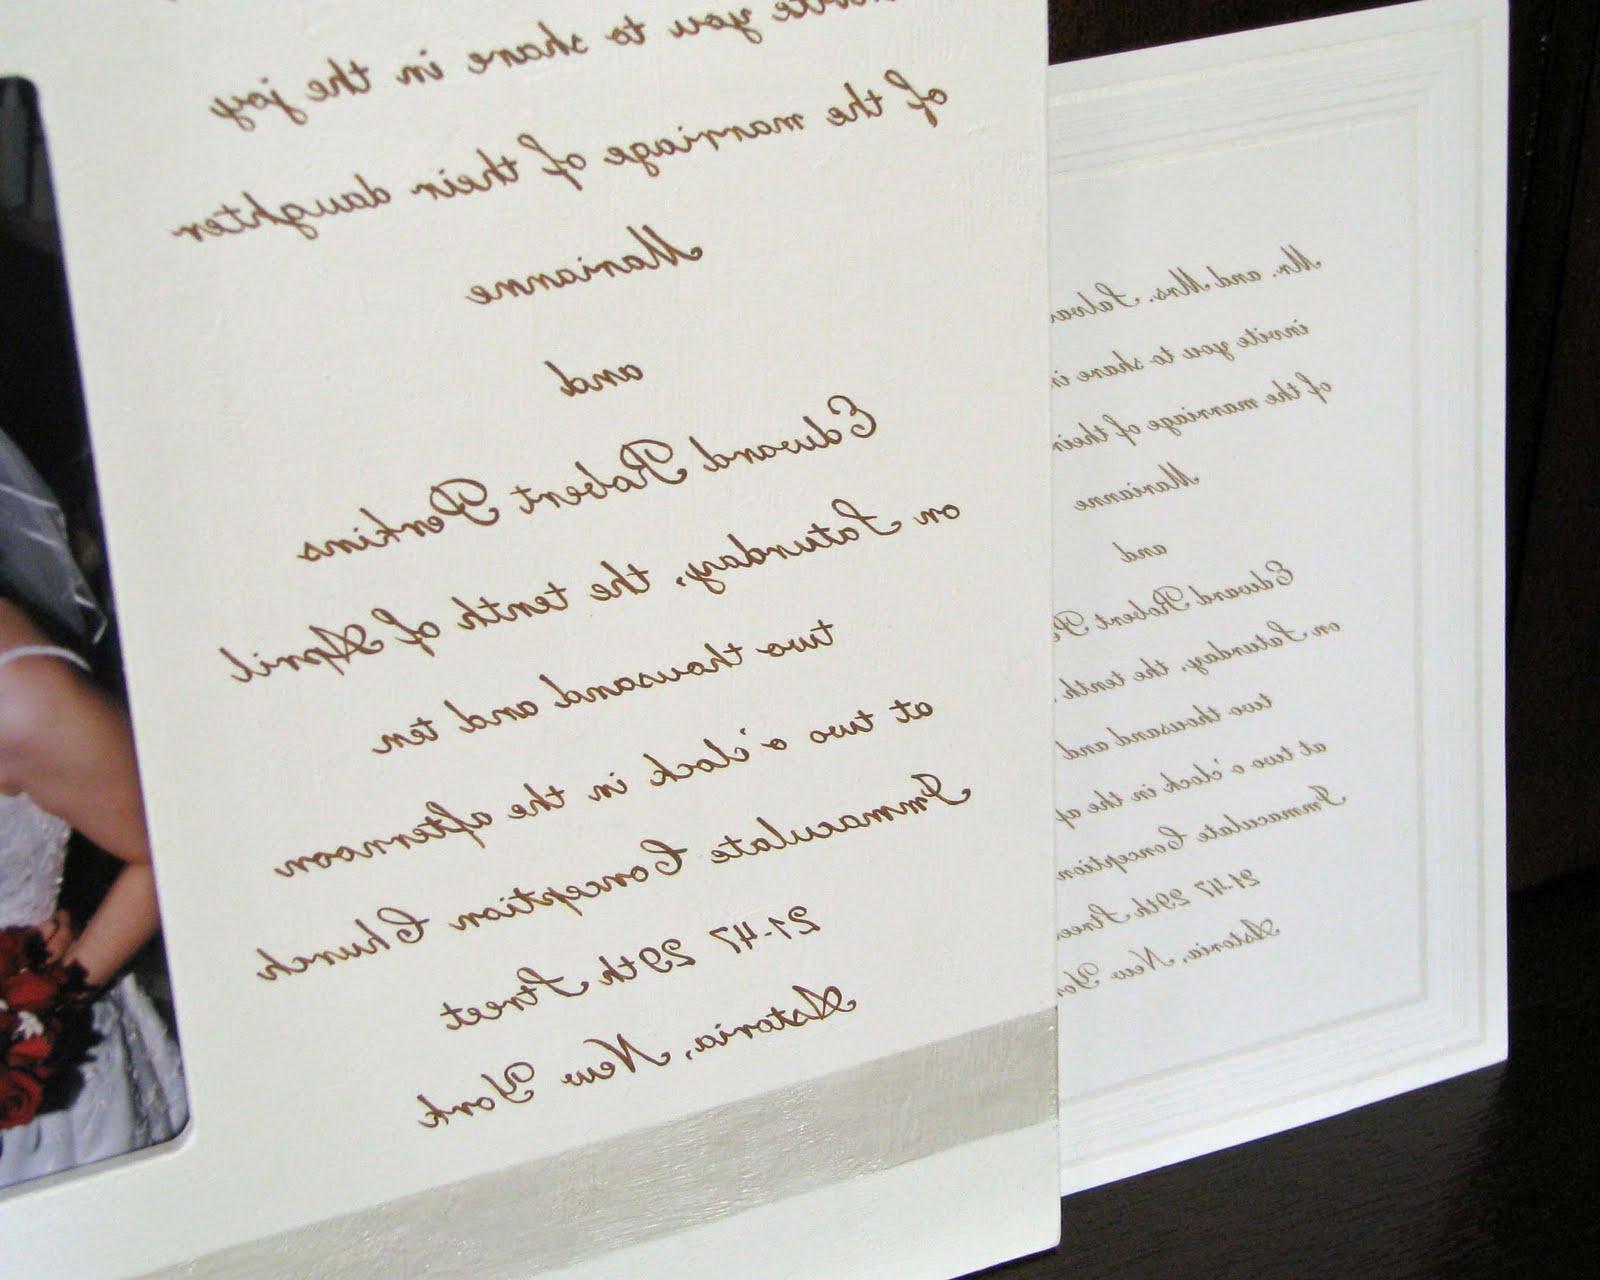 invite you to share in the joy
of the marriage of their daughter
Marianne
and
Edward Robert Perkins
on Saturday, the tenth of April
two thousand and ten
at two o'clock in the afternoon
Immaculate Conception Church
21-47 29th Street
Astoria, New York
Mr. and Mrs. Salva
invite you to share in
of the marriage of their
Marianne
and
Edward Robert Pe
on Saturday, the tenth
two thousand and
at two o'clock in the af
Immaculate Conception
21-47 29th Stree
Astoria, New Yor